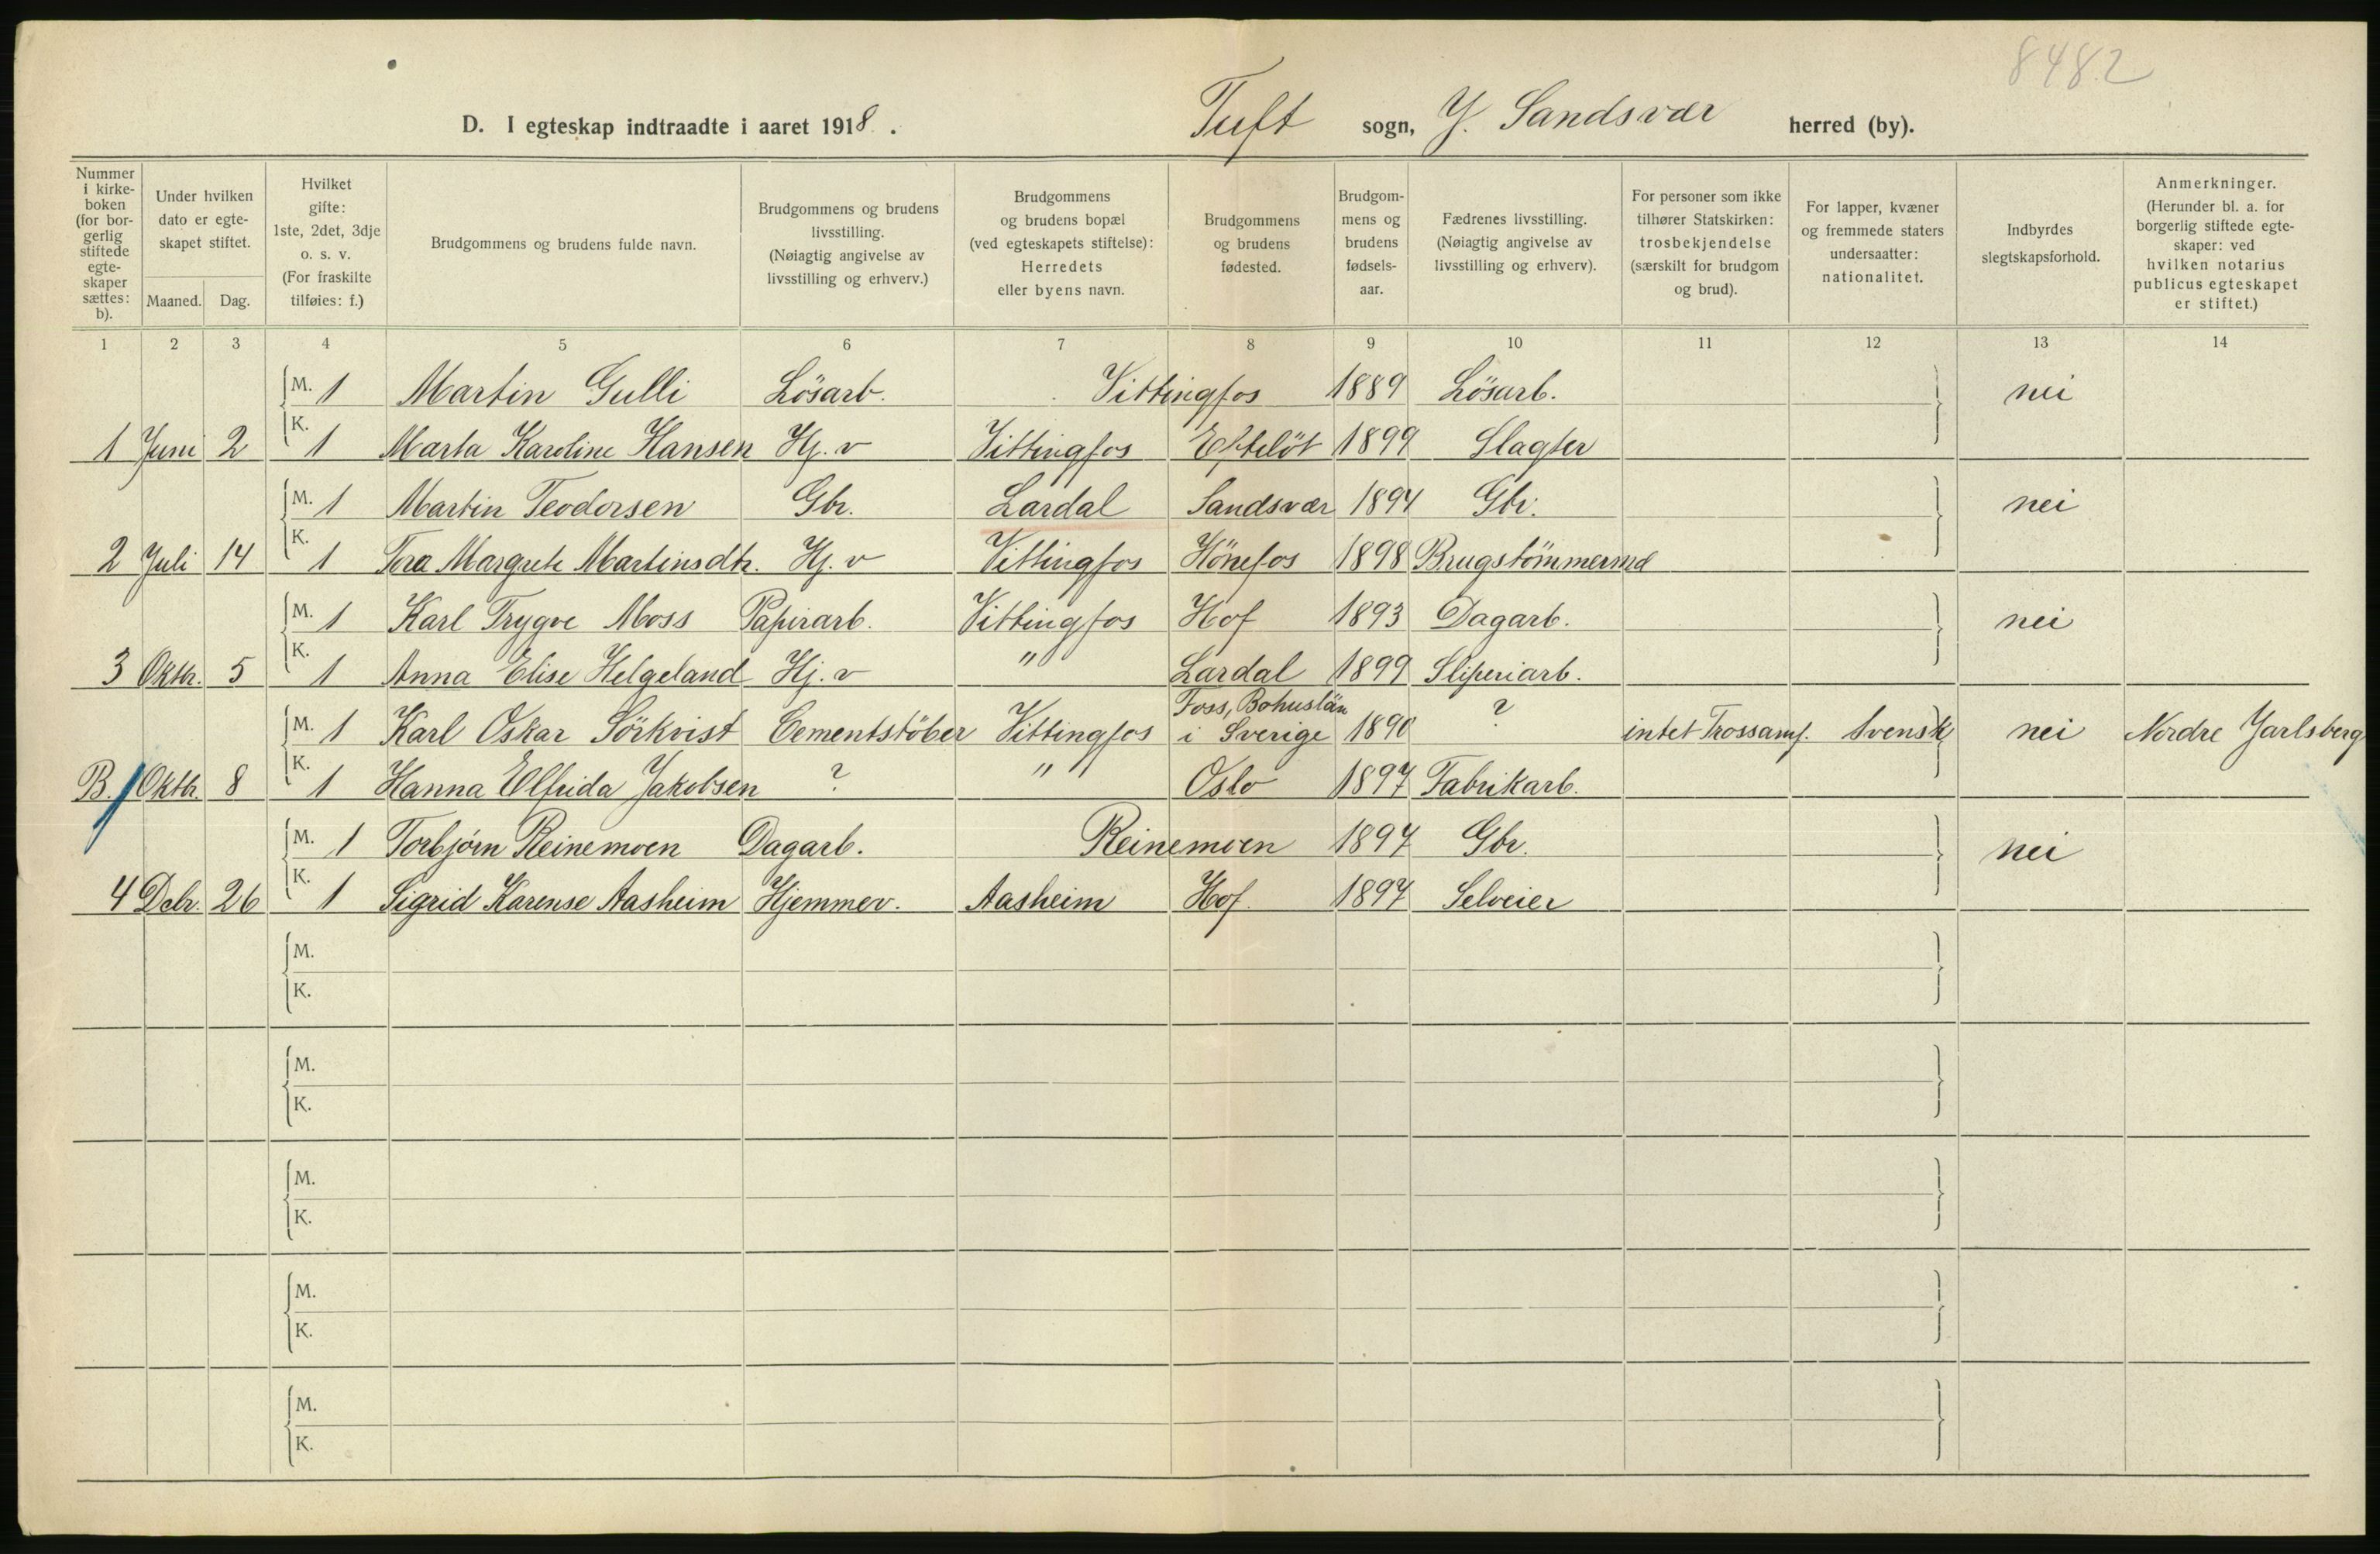 8482
D. I egteskap indtraadte i aaret 1918. Tuft sogn, Y. Sandsvær herred (by).
Nummer i kirke-boken (for bor-gerlig stiftede egte-skaper sættes: b).
Under hvilken dato er egte-skapet stiftet.
Maaned. Dag.
Hvilket gifte: 1ste, 2det, 3dje o. s. v. (For fraskilte tilføies: f.)
Brudgommens og brudens fulde navn.
Brudgommens og brudens livsstilling. (Nøiagtig angivelse av livsstilling og erhverv.)
Brudgommens og brudens bopæl (ved egteskapets stiftelse): Herredets eller byens navn.
Brudgommens og brudens fødested.
Brudgom-mens og brudens fødsels-aar.
Fædrenes livsstilling. (Nøiagtig angivelse av livsstilling og erhverv).
For personer som ikke tilhører Statskirken: trosbekjendelse (særskilt for brudgom og brud).
For lapper, kvæner og fremmede staters undersaatter: nationalitet.
Indbyrdes slegtskapsforhold.
Anmerkninger. (Herunder bl. a. for borgerlig stiftede egte-skaper: ved hvilken notarius publicus egteskapet er stiftet.)
1 2 3 4 5 6 7 8 9 10 11 12 13 14
M. 1 Martin Gulli Lösarb. Vittingfos 1889 Lösarb. nei
1 Juni 2 K. 1 Marta Karoline Hansen Hj. v Vittingfos Efteløt 1899 Slagter
M. 1 Martin Teodorsen Gbr. Lardal Sandsvær 1894 Gbr. nei
2 Juli 14 K. 1 Tora Margrete Martinsdtr. Hj. v Vittingfos Hönefos 1898 Brugstömmermd
M. 1 Karl Trygve Moss Papirarb. Vittingfos Hof 1893 Dagarb. nei
3 Oktr. 5 K. 1 Anna Elise Helgeland Hj. v " Lardal 1899 Sliperiarb.
Foss, Bohuslän
M. 1 Karl Oskar Sörkvist Cementstöber Vittingfos i Sverige 1890 ? intet Trossamf. Svensk nei Nordre Jarlsberg
B. 1 Oktr. 8 K. 1 Hanna Elfrida Jakobsen ? " Oslo 1897 Fabrikarb.
M. 1 Torbjørn Reinemoen Dagarb. Reinemoen 1897 Gbr. nei
4 Debr. 26 K. 1 Sigrid Karense Aasheim Hjemmev. Aasheim Hof. 1897 Selveier
M.
K.
M.
K.
M.
K.
M.
K.
M.
K.